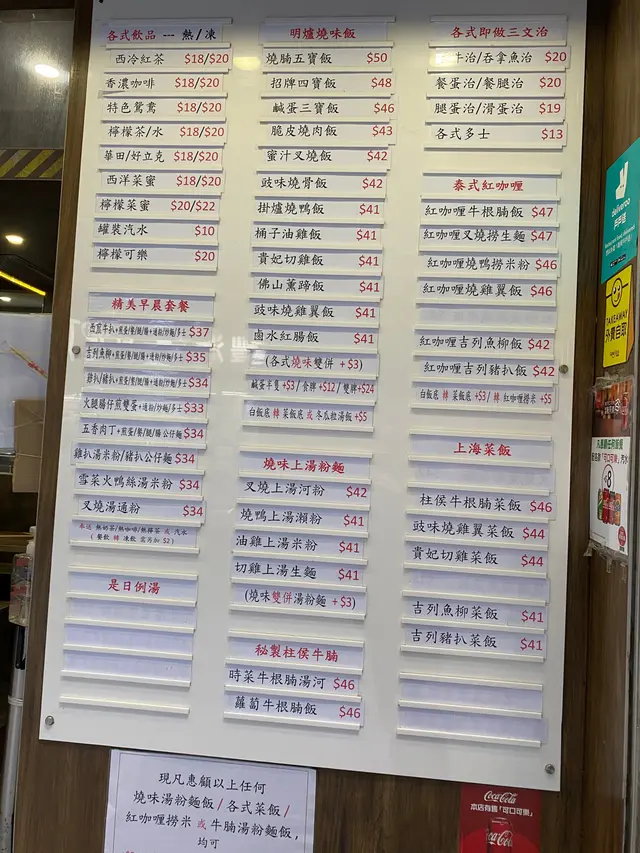 各式飲品 --- 熱/凍
西冷紅茶 $18/$20
香濃咖啡 $18/$20
特色鴛鴦 $18/$20
檸檬茶/水 $18/$20
華田/好立克 $18/$20
西洋菜蜜 $18/$20
檸檬菜蜜 $20/$22
罐裝汽水 $10
檸檬可樂 $20
精美早晨套餐
$37
吉列魚柳+煎蛋/餐/腿/腸+通粉/炒麵/多士 $35
雞扒/豬扒+煎蛋/餐/腿/腸+通粉/炒麵/多士 $34
火腿腸仔煎雙蛋+通粉/炒麵/多士 $33
五香肉丁+煎蛋/餐/腿/腸公仔麵 $34
雞扒湯米粉/豬扒公仔麵 $34
雪菜火鴨絲湯米粉 $34
叉燒湯通粉 $34
奉送 熱奶茶/熱咖啡/熱檸茶 或 汽水
(餐飲 轉 凍飲 需另加 $2)
是日例湯
明爐燒味飯
燒腩五寶飯 $50
招牌四寶飯 $48
鹹蛋三寶飯 $46
脆皮燒肉飯 $43
蜜汁叉燒飯 $42
豉味燒骨飯 $42
掛爐燒鴨飯 $41
桶子油雞飯 $41
貴妃切雞飯 $41
佛山薰蹄飯 $41
豉味燒雞翼飯 $41
鹵水紅腸飯 $41
(各式燒味雙併 +$3)
鹹蛋半隻+$3/食髀+$12/雙髀+$24
白飯底 轉 菜飯底 或 冬瓜粒湯飯+$5
燒味上湯粉麵
叉燒上湯河粉 $42
燒鴨上湯瀨粉 $41
油雞上湯米粉 $41
切雞上湯生麵 $41
(燒味雙併湯粉麵 +$3)
秘製柱侯牛腩
時菜牛根腩湯河 $46
蘿蔔牛根腩飯 $46
各式即做三文治
牛治/吞拿魚治 $20
餐蛋治/餐腿治 $20
腿蛋治/滑蛋治 $19
各式多士 $13
泰式紅咖喱
紅咖喱牛根腩飯 $47
紅咖喱叉燒撈生麵 $47
紅咖喱燒鴨撈米粉 $46
紅咖喱燒雞翼飯 $46
紅咖喱吉列魚柳飯 $42
紅咖喱吉列豬扒飯 $42
白飯底 轉 菜飯底 +$3/轉 紅咖喱撈米 +$5
上海菜飯
柱侯牛根腩菜飯 $46
豉味燒雞翼菜飯 $44
貴妃切雞菜飯 $44
吉列魚柳菜飯 $41
吉列豬扒菜飯 $41
deliveroo
戶戶送
TAKEAWAY
外賣自取
$8
現凡惠顧以上任何
燒味湯粉麵飯/各式菜飯/
紅咖喱撈米 或 牛腩湯粉麵飯,
均可
Coca-Cola
本店有售「可口可樂」
Coca-Cola